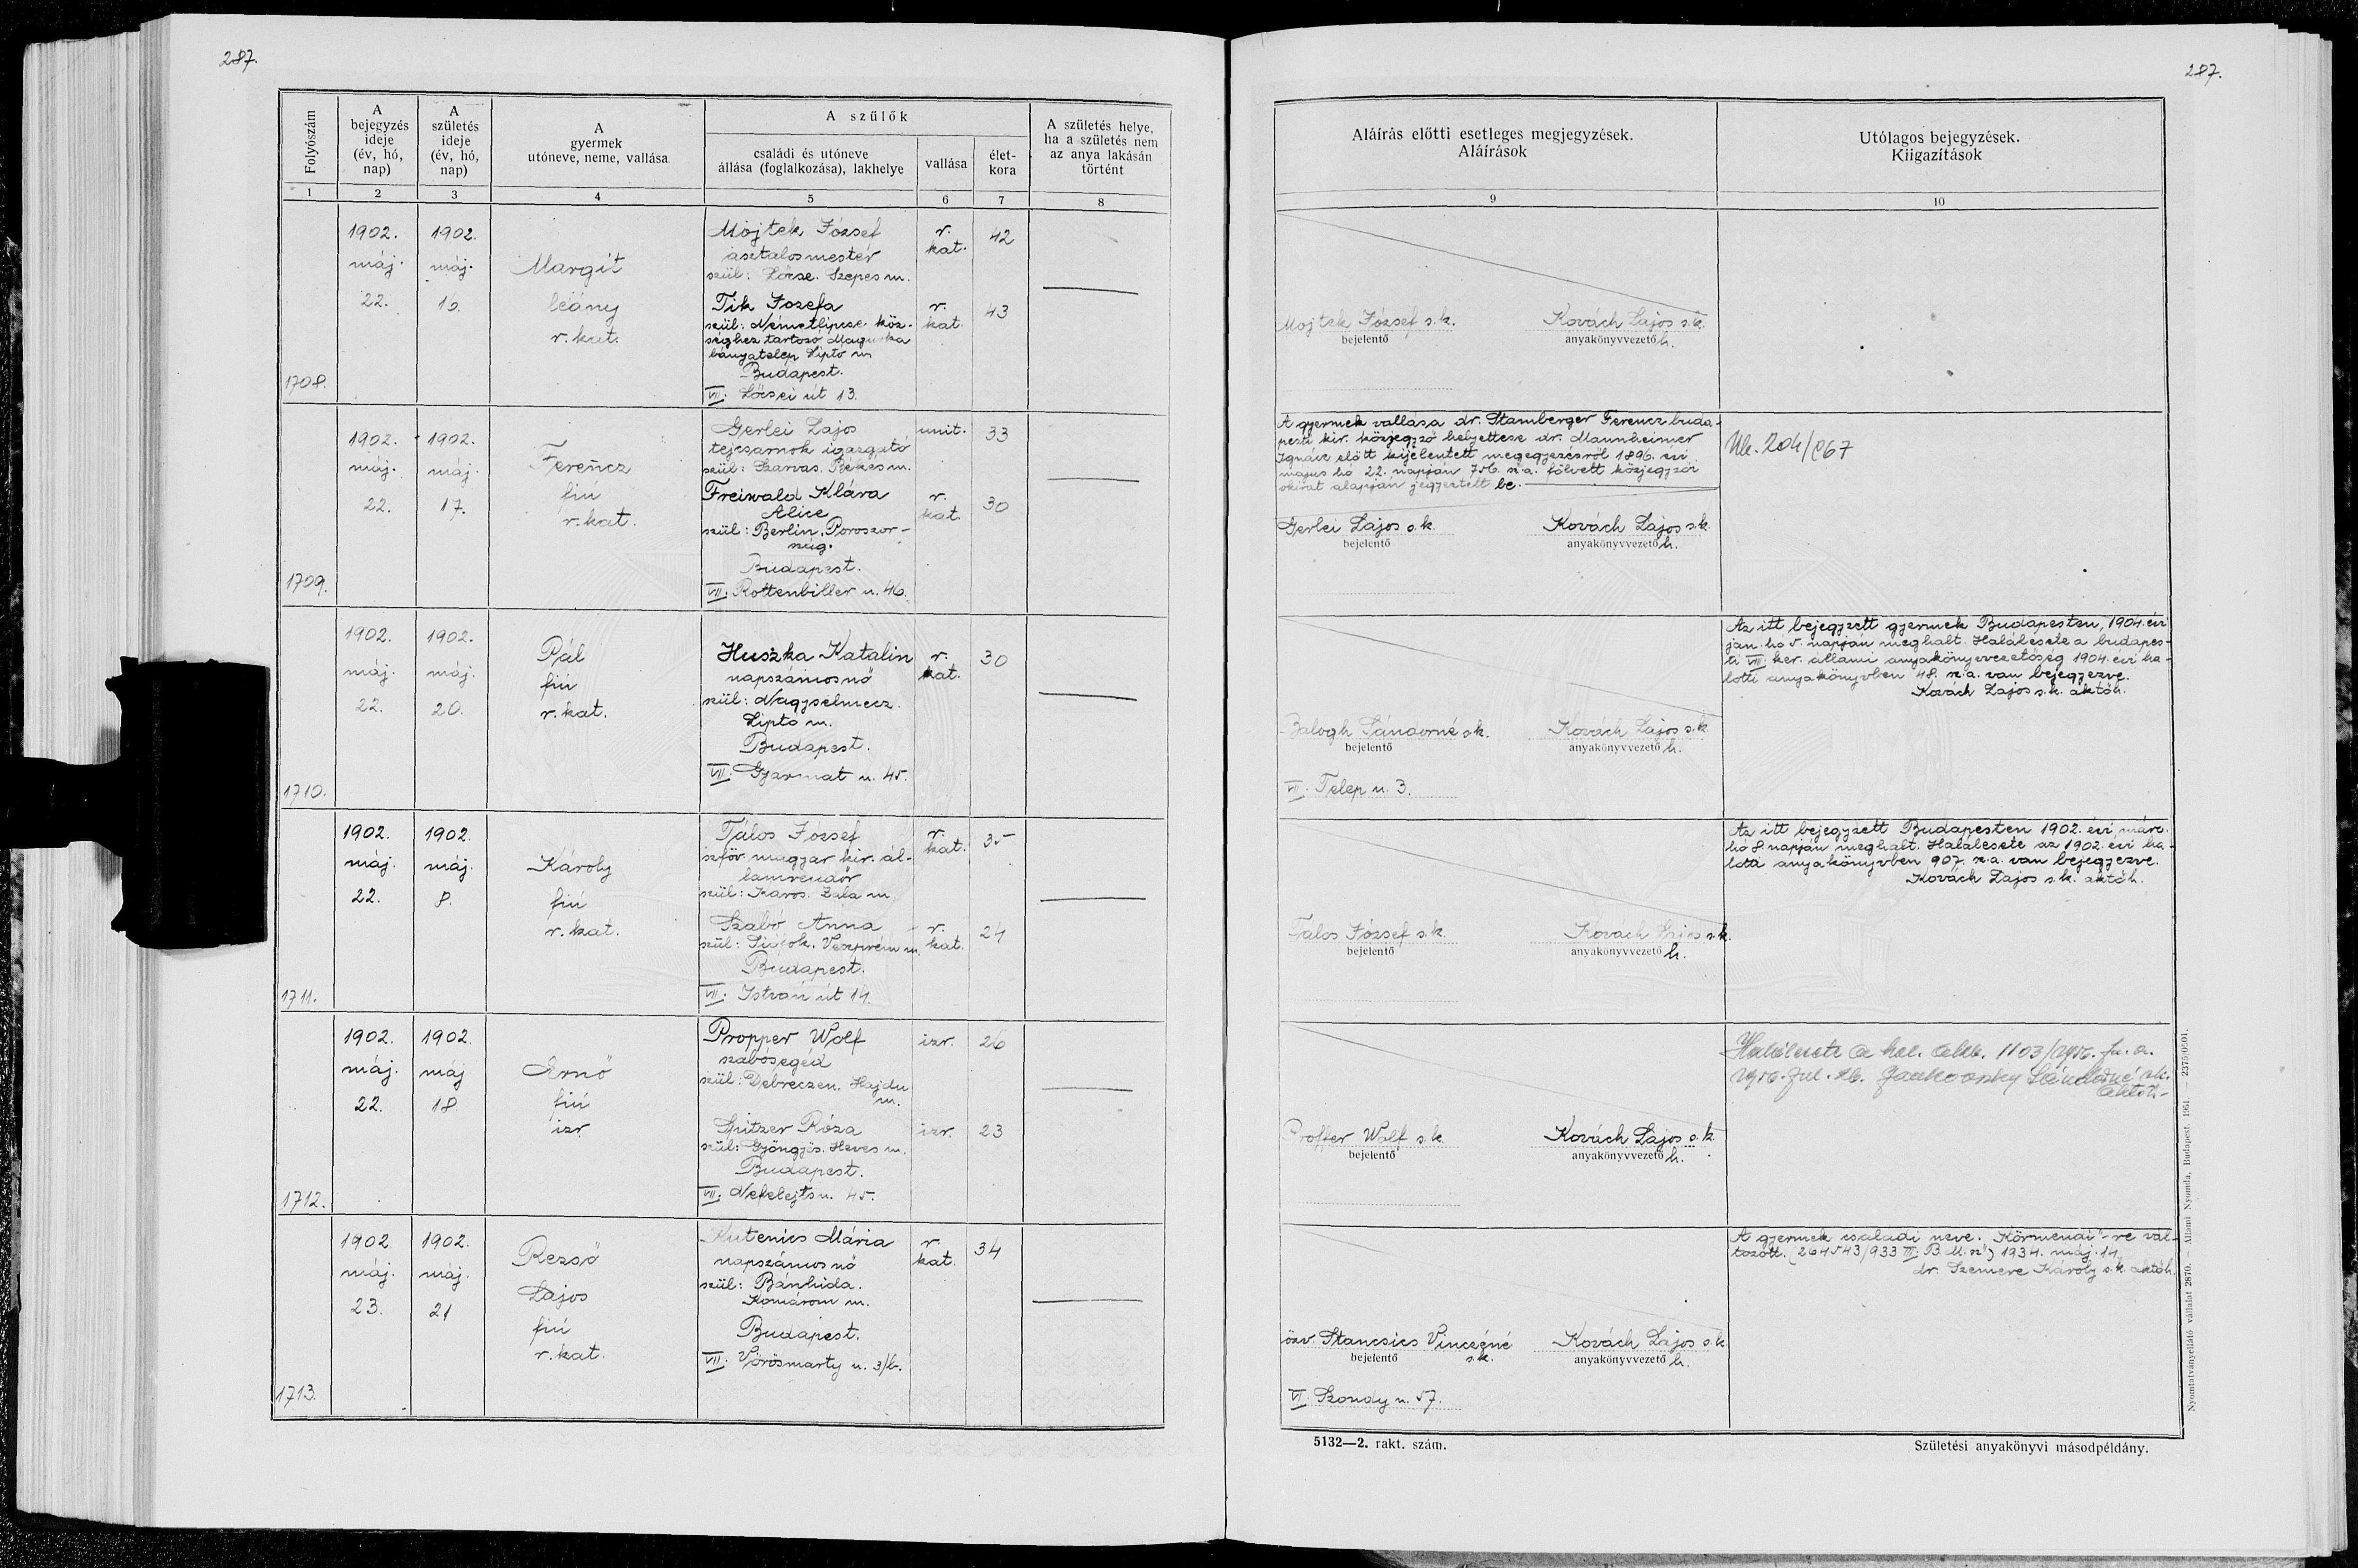 287.
287.
Folyószám
A bejegyzés ideje (év, hó, nap)
A születés ideje (év, hó, nap)
A gyermek utóneve, neme, vallása
A szülők
családi és utóneve állása (foglalkozása), lakhelye
vallása
életkora
A születés helye, ha a születés nem az anya lakásán történt
Aláírás előtti esetleges megjegyzések.
Aláírások
Utólagos bejegyzések.
Kiigazítások
1 2 3 4 5 6 7 8 9 10
1708.
1902. máj. 22.
1902. máj. 16.
Margit
leány
r. kat.
Mojtek József
asztalosmester
szül: Lőcse. Szepes m.
r. kat.
42
Tik Jozefa
szül: Németlipcse köz-
séghez tartozó Magurka
bányatelep Liptó m
r. kat.
43
Budapest.
VII. Lőcsei út 13.
Mojtek József s.k.
bejelentő
Kovách Lajos s.k.
anyakönyvvezető h.
1709.
1902. máj. 22.
1902. máj. 17.
Ferencz
fiú
r. kat.
Gerlei Lajos
tejcsarnok igazgató
szül: Szarvas. Békés m.
unit.
33
Freiwald Klára
Alice
szül: Berlin. Poroszor-
szág.
r. kat.
30
Budapest.
VII. Rottenbiller u. 46.
A gyermek vallása dr. Stamberger Ferencz buda-
pesti kir. közjegyző helyettese dr. Mannheimer
Ignácz előtt kijelentett megegyezésről 1896. évi
május hó 22. napján 756. sz. a. fölvett közjegyzői
okirat alapján jegyeztetett be.
Gerlei Lajos s.k.
bejelentő
Kovách Lajos s.k.
anyakönyvvezető h.
1710.
1902. máj. 22.
1902. máj. 20.
Pál
fiú
r. kat.
Huszka Katalin
napszámosnő
szül: Nagyselmecz.
Liptó m.
r. kat.
30
Budapest.
VII. Gyarmat u. 45.
Balogh Sándorné s.k.
bejelentő
Kovách Lajos s.k.
anyakönyvvezető h.
VII. Telep u. 3.
Az itt bejegyzett gyermek Budapesten, 1904. évi
jan. hó 5. napján meghalt. Halálesete a budapes-
ti VII. ker. állami anyakönyvvezetőség 1904. évi ha-
lotti anyakönyvben 48. sz. a. van bejegyezve.
Kovách Lajos s.k. aktóh.
1711.
1902. máj. 22.
1902. máj. 8.
Károly
fiú
r. kat.
Tálos József
szföv. magyar kir. ál-
lamrendőr
szül: Karos. Zala m.
r. kat.
35
Szabó Anna
szül: Siófok. Veszprém m.
r. kat.
24
Budapest.
VII. István út 14.
Tálos József s.k.
bejelentő
Kovách Lajos s.k.
anyakönyvvezető h.
Az itt bejegyzett Budapesten 1902. évi
hó 8 napján meghalt. Halálesete az 1902. évi ha-
lotti anyakönyvben 907. sz. a. van bejegyezve.
Kovách Lajos s.k. aktóh.
1712.
1902. máj. 22.
1902. máj 18
Ernő
fiú
izr.
Propper Wolf
szabósegéd
szül: Debreczen. Hajdu
m.
izr.
26
Spitzer Róza
szül: Gyöngyös. Heves m.
izr.
23
Budapest.
VII. Nefelejts u. 45.
Proffer Wolf s.k.
bejelentő
Kovách Lajos s.k.
anyakönyvvezető h.
1103/1956.
1713.
1902 máj. 23.
1902. máj. 21
Rezső
Lajos
fiú
r. kat.
Kutenics Mária
napszámosnő
szül: Bánhida.
Komárom m.
r. kat.
34
Budapest.
VII. Vörösmarty u. 3/b.
özv. Stancsics Vinczéné
s.k.
bejelentő
Kovách Lajos s.k.
anyakönyvvezető h.
VI. Szondy u. 57.
A gyermek családi neve "Körmendi"-re vál-
tozott. (264543/933 III. B.M. sz.) 1934. máj. 14.
dr. Szemere Károly s.k. aktóh.
5132—2. rakt. szám.
Születési anyakönyvi másodpéldány.
Nyomtatványellátó vállalat 2870. — Állami Nyomda, Budapest. 1951.